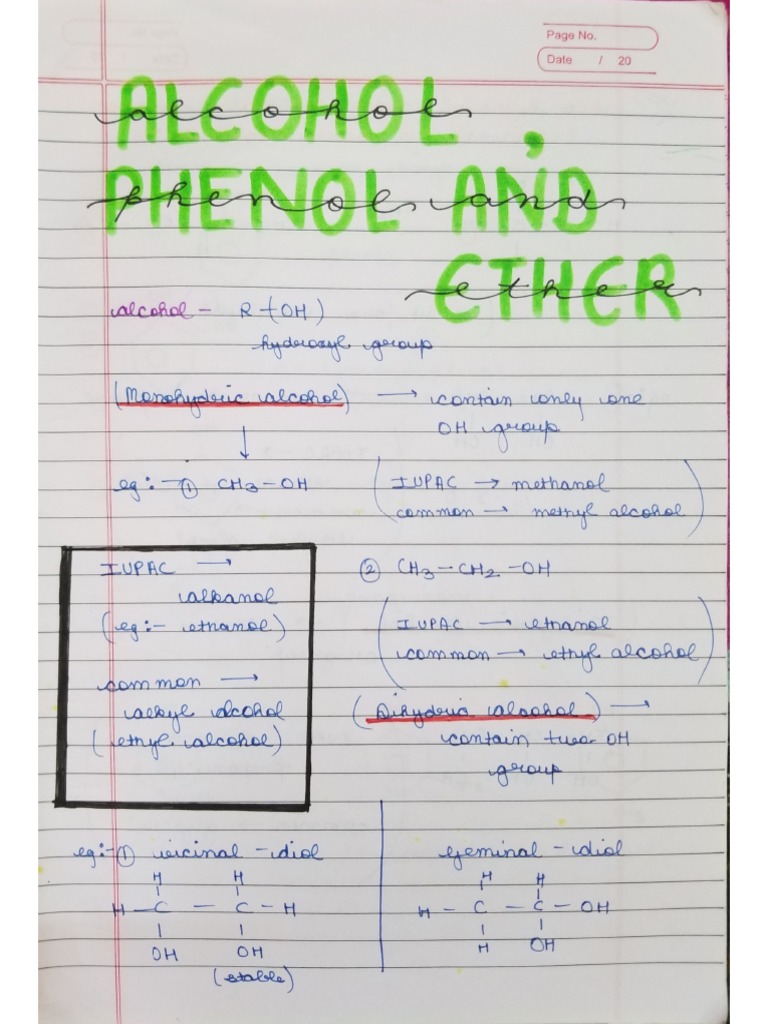 Page No.
Date / 20
ALCOHOL,
alcohol
PHENOL AND
phenol and
ETHER
ether
alcohol - R-(OH)
hydroxyl group
(Monohydric alcohol) → contain only one
OH group
↓
eg:- ① CH3-OH
(IUPAC → methanol
common → methyl alcohol)
IUPAC →
alkanol
(eg:- ethanol)
common →
alkyl alcohol
(ethyl alcohol)
② CH3-CH2-OH
(IUPAC → ethanol
common → ethyl alcohol)
(Dihydric alcohol) →
contain two OH
group
eg:- ① vicinal-diol
H H
H-C - C-H
OH OH
(stable)
Geminal-diol
H H
H - C - C - OH
H OH